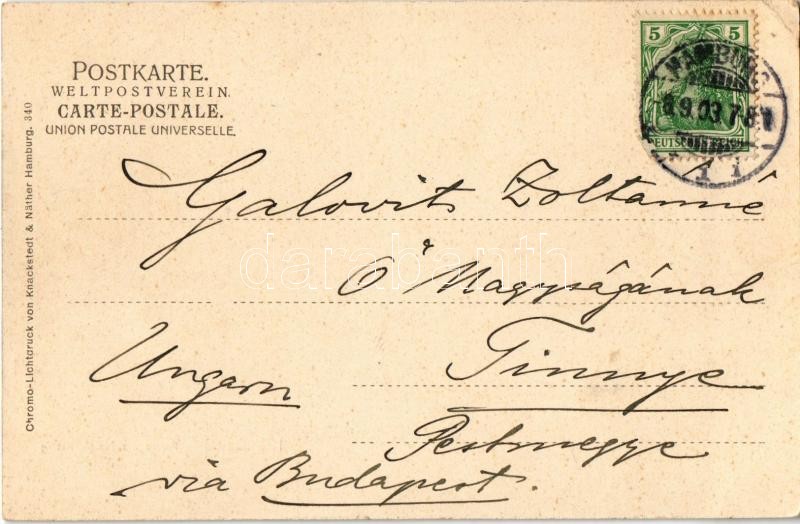 POSTKARTE.
WELTPOSTVEREIN.
CARTE-POSTALE.
UNION POSTALE UNIVERSELLE.
5 5
HAMBURG
9.03.7-8
1 i
Galovits Zoltánné
Ő Nagyságának
Ungarn
Tinnye
Pestmegye
via Budapest.
Chromo-Lichtdruck von Knackstedt & Näther Hamburg. 340
darabanth